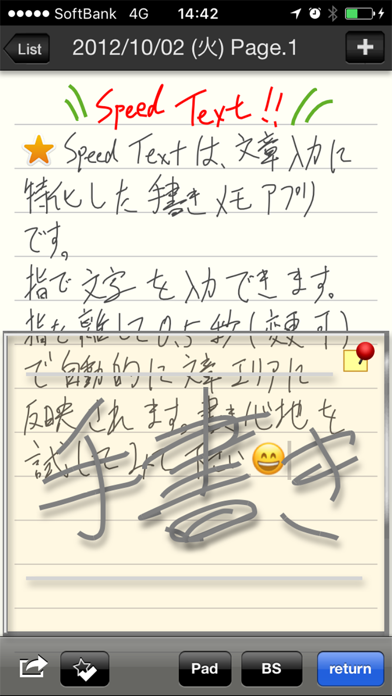 SoftBank 4G 14:42
List 2012/10/02 (火) Page.1 +
Speed Text!!
Speed Textは、文章入力に
特化した手書きメモアプリ
です。
指で文字を入力できます。
指を離して0.5秒(変更可)
で自動的に文章エリアに
反映されます。書き心地を
試してみて下さい😄
手書き
Pad BS return